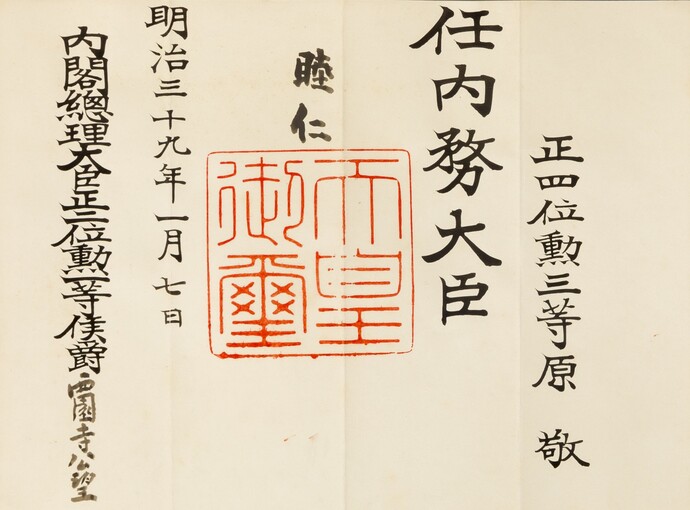 正四位勳三等原敬
任内務大臣
睦仁
天皇御璽
明治三十九年一月七日
内閣總理大臣正二位勳一等侯爵西園寺公望